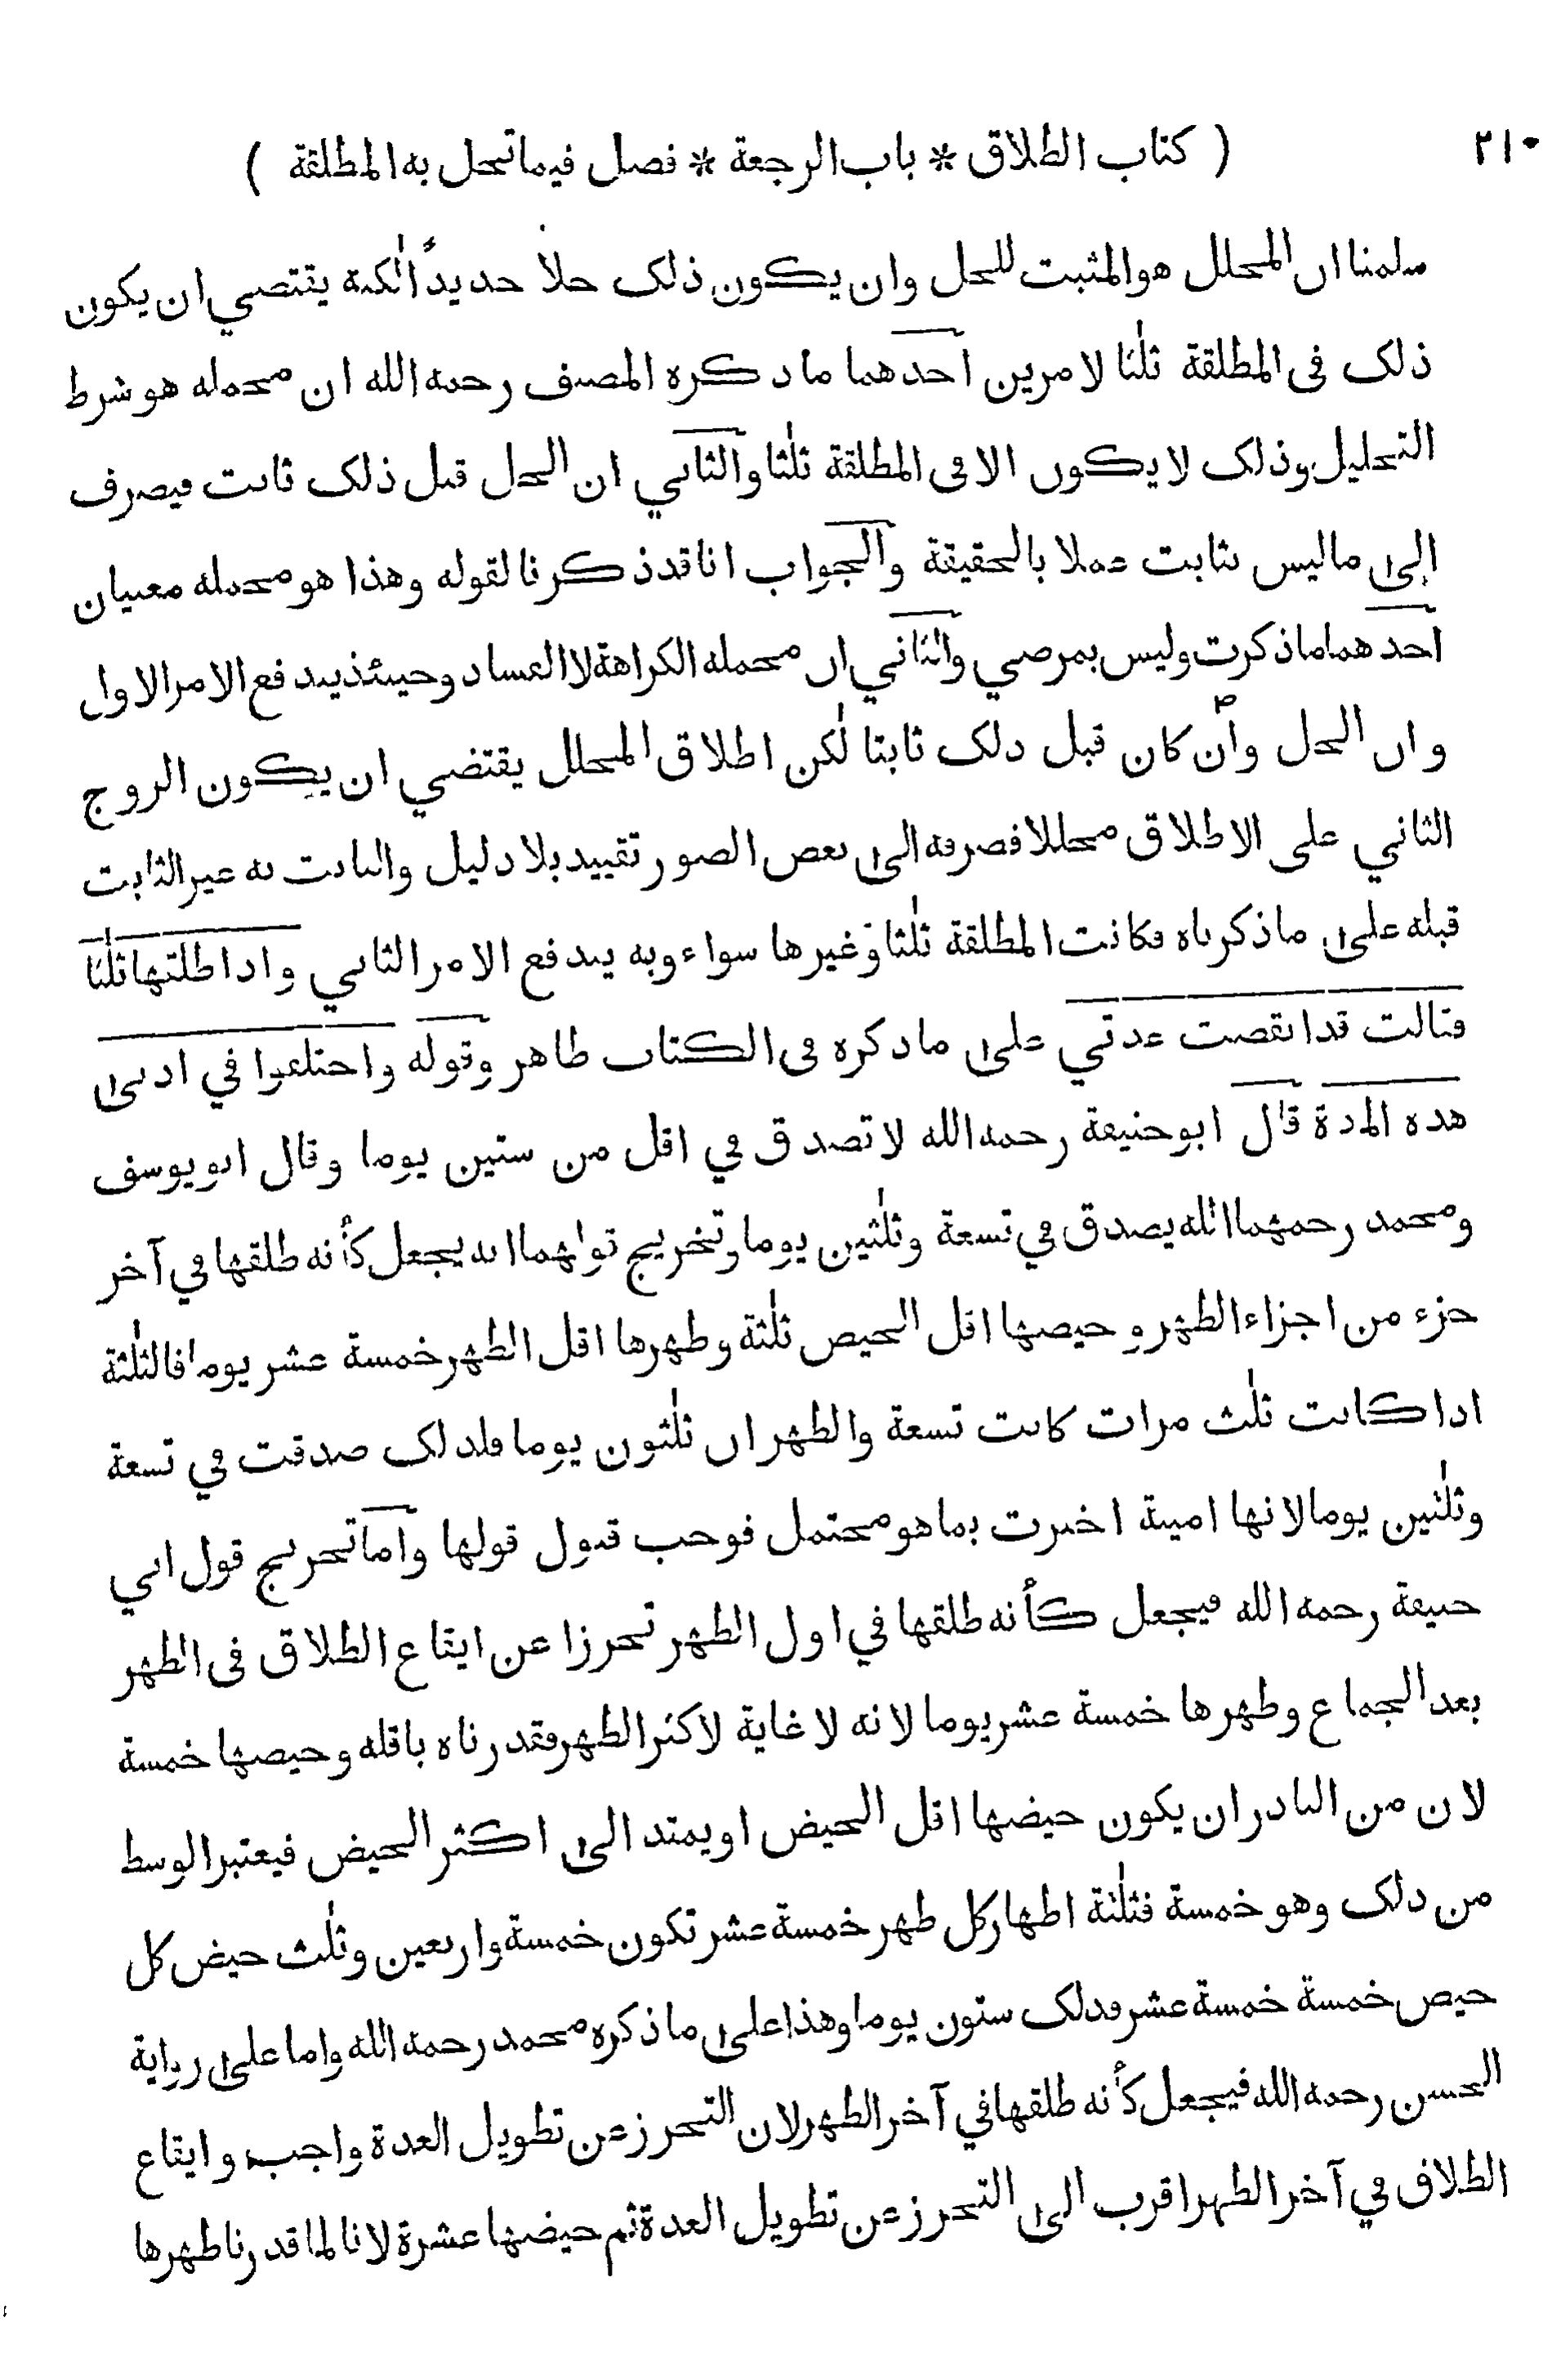 ٢١٠
( كتاب الطلاق * باب الرجعة * فصل فيما تحل به المطلقة )
سلمنا ان المحلل هو المثبت للحل وان يكون ذلك حلا جديدا لكنه يقتضي ان يكون
ذلك فى المطلقة ثلثا لامرين احدهما ما ذكره المصنف رحمه الله ان محمله هو شرط
التحليل وذلك لا يكون الا فى المطلقة ثلثا والثاني ان الحل قبل ذلك ثابت فيصرف
إلى ما ليس بثابت عملا بالحقيقة والجواب انا قد ذكرنا لقوله وهذا هو محمله معنيان
احدهما ما ذكرت وليس بمرضي والثاني ان محمله الكراهة لا الفساد وحينئذ يندفع الامر الاول
وان الحل وان كان قبل ذلك ثابتا لكن اطلاق المحلل يقتضي ان يكون الزوج
الثاني على الاطلاق محللا فصرفه الى بعض الصور تقييد بلا دليل والثابت به غير الثابت
قبله على ما ذكرناه فكانت المطلقة ثلثا وغيرها سواء وبه يندفع الامر الثاني واذا طلقها ثلثا
فقالت قد انقضت عدتي على ما ذكره فى الكتاب ظاهر وقوله واختلفوا في ادنى
هذه المدة قال ابو حنيفة رحمه الله لا تصدق في اقل من ستين يوما وقال ابو يوسف
ومحمد رحمهما الله يصدق في تسعة وثلثين يوما وتخريج قولهما انه يجعل كأنه طلقها في آخر
جزء من اجزاء الطهر و حيضها اقل الحيض ثلثة وطهرها اقل الطهر خمسة عشر يوما فالثلثة
اذا كانت ثلث مرات كانت تسعة والطهران ثلثون يوما فلذلك صدقت في تسعة
وثلثين يوما لانها امينة اخبرت بما هو محتمل فوجب قبول قولها واما تخريج قول ابي
حنيفة رحمه الله فيجعل كأنه طلقها في اول الطهر تحرزا عن ايقاع الطلاق فى الطهر
بعد الجماع وطهرها خمسة عشر يوما لانه لا غاية لاكثر الطهر فقدرناه باقله وحيضها خمسة
لان من النادر ان يكون حيضها اقل الحيض او يمتد الى اكثر الحيض فيعتبر الوسط
من ذلك وهو خمسة فثلثة اطهار كل طهر خمسة عشر تكون خمسة واربعين وثلث حيض كل
حيض خمسة خمسة عشر فذلك ستون يوما وهذا على ما ذكره محمد رحمه الله واما على رواية
الحسن رحمه الله فيجعل كأنه طلقها في آخر الطهر لان التحرز عن تطويل العدة واجب و ايقاع
الطلاق في آخر الطهر اقرب الى التحرز عن تطويل العدة ثم حيضها عشرة لانا لما قدرنا طهرها